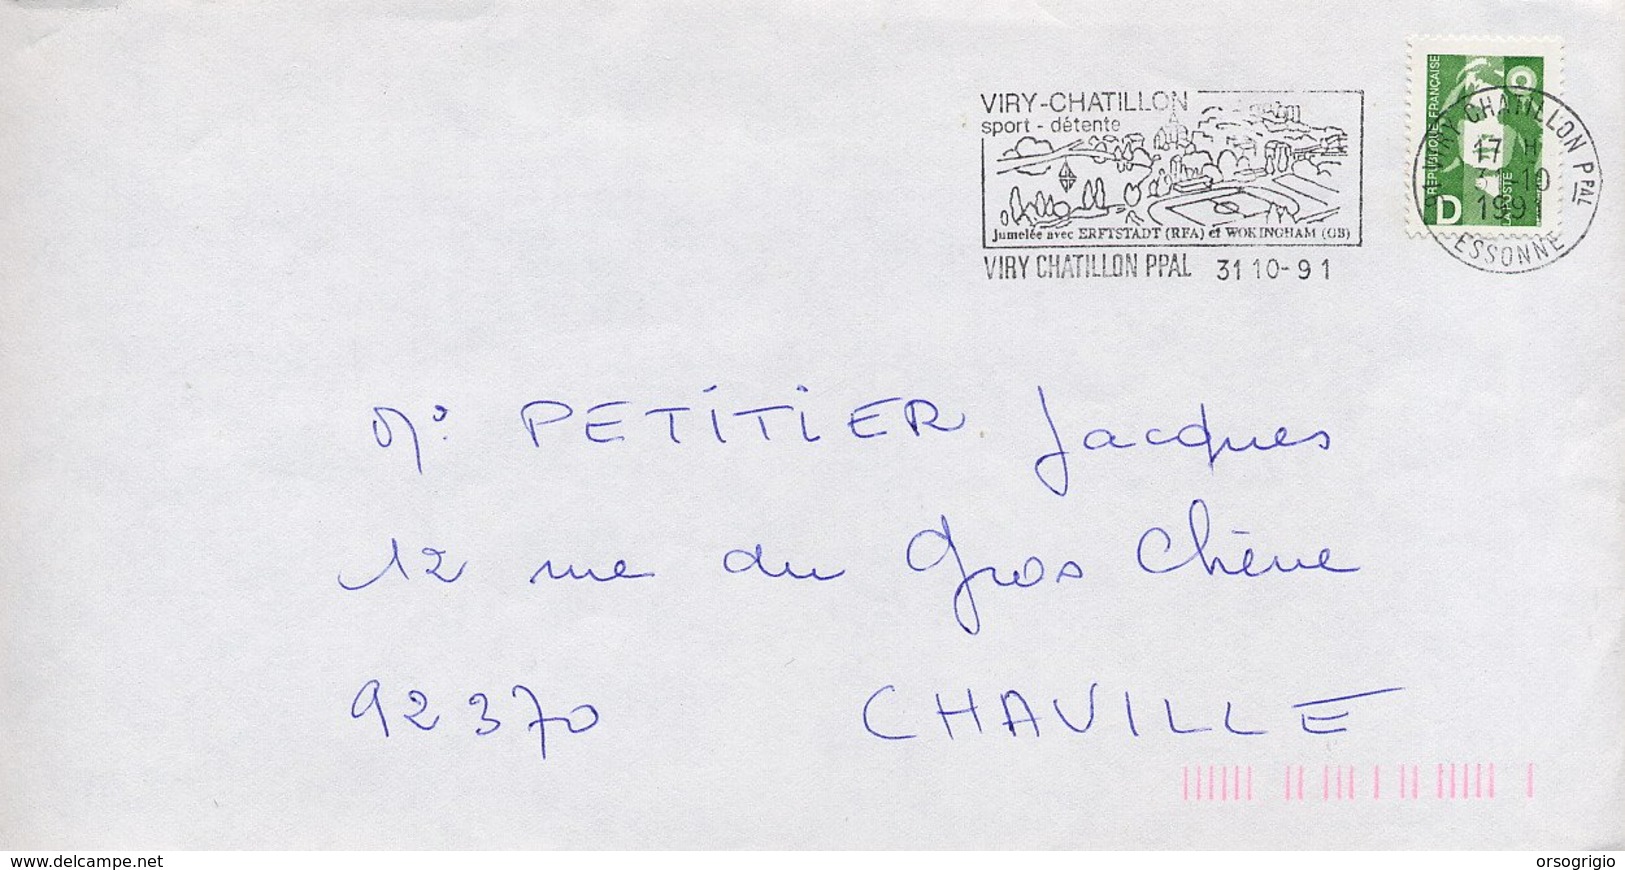 VIRY-CHATILLON
sport - détente
Jumelée avec ERFTSTADT (RFA) et WOKINGHAM (GB)
VIRY CHATILLON PPAL 31 10-91
RÉPUBLIQUE FRANÇAISE
D
LA POSTE
VIRY CHATILLON PPAL
17 H
31-10
1991
ESSONNE
Mr PETITIER Jacques
12 rue du Gros Chêne
92370 CHAVILLE
www.delcampe.net
orsogrigio